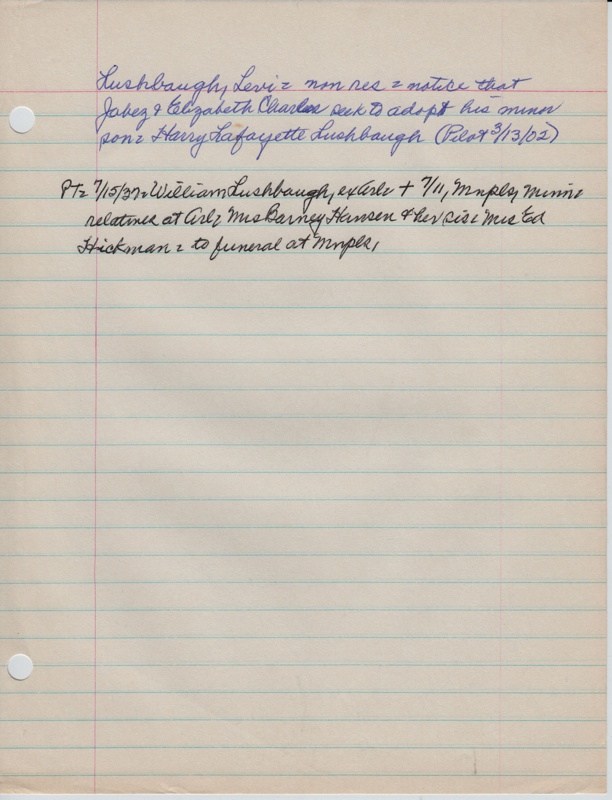 Lushbaugh, Levi = non res = notice that
Jabez & Elizabeth Charles seek to adopt his minor
son = Harry Lafayette Lushbaugh (Pilot 3/13/02)
PT = 7/15/37 = William Lushbaugh, ex Arl = + 7/11, Mnpls, Minn =
relatives at Arl = Mrs Barney Hansen & her sis = Mrs Ed
Hickman = to funeral at Mnpls,